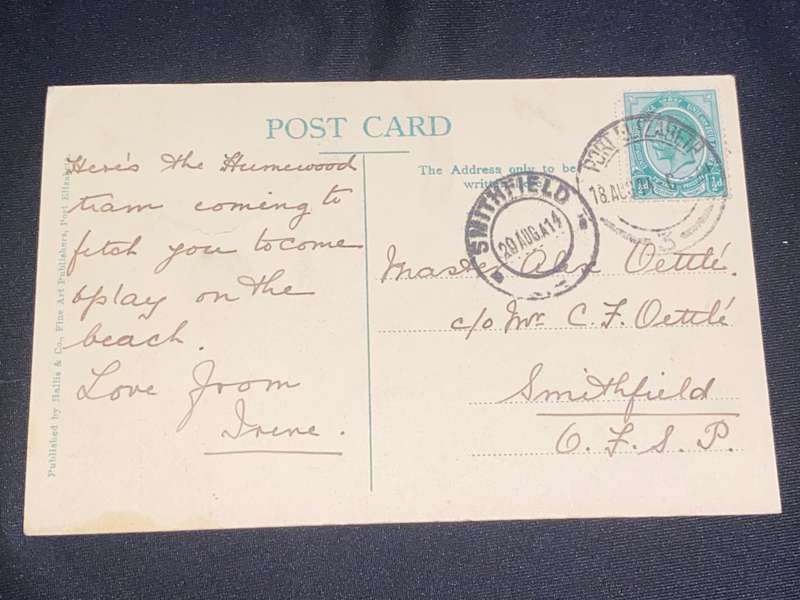 POST CARD
The Address only to be
Here's the Humewood
tram coming to
fetch you to come
& play on the
beach.
Love from
Irene.
Master Alex Oettlé.
c/o Mr C. F. Oettlé
Smithfield
O. F. S. P.
SMITHFIELD
29 AUG 14
PORT ELIZABETH
18 AUG
3
½d
Published by Hallis & Co., Fine Art Publishers, Port Elizabeth